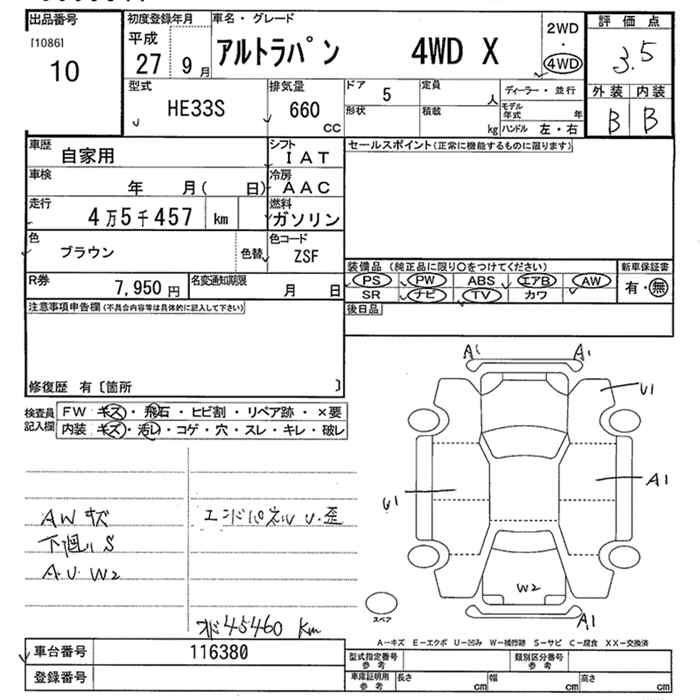 出品番号
[1086]
10
初度登録年月
平成
27 9月
車名・グレード
アルトラパン 4WD X
2WD
・
4WD
評価点
3.5
外装 内装
B B
型式
HE33S
排気量
660
CC
ドア 5
定員 人
形状
積載 kg
ディーラー・並行
モデル年式 年
ハンドル 左・右
車歴
自家用
シフト
IAT
セールスポイント(正常に機能するものに限ります)
車検
年 月( 日)
冷房
AAC
走行
4万5千457 km
燃料
ガソリン
色
ブラウン
色替
色コード
ZSF
装備品 (純正品に限り○をつけてください)
PS PW ABS エアB AW
SR ナビ TV カワ
新車保証書
有・無
R券
7,950円
名変通知期限
月 日
注意事項申告欄(不具合内容等は具体的に記入して下さい)
後日品
修復歴 有〔箇所 〕
検査員記入欄
FW キズ・飛石・ヒビ割・リペア跡・×要
内装 キズ・汚レ・コゲ・穴・スレ・キレ・破レ
A1 A1
U1
A1
U1
W2
A1
スペア
AWキズ
下廻りS
A.U W2
エンドパネルU・歪
45460 Km
A-キズ E-エクボ U-凹み W-補修跡 S-サビ C-腐食 XX-交換済
車台番号
116380
登録番号
型式指定番号 参考
類別区分番号 参考
車庫証明用 参考
長さ cm
幅 cm
高さ cm